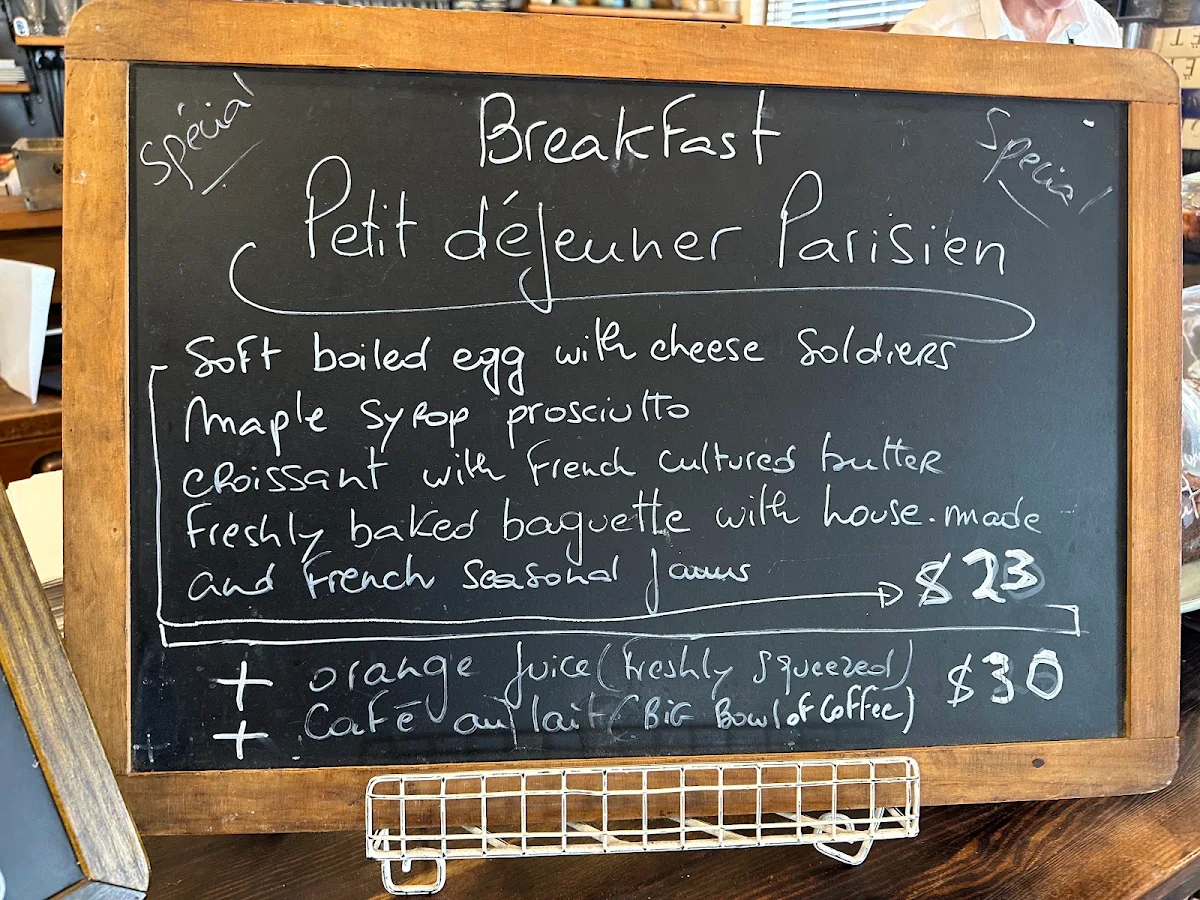 Spécial
Breakfast
Special
Petit déjeuner Parisien
Soft boiled egg with cheese soldiers
Maple syrop prosciutto
croissant with French cultured butter
Freshly baked baguette with house.made
and French seasonal jams
$23
+ orange juice (freshly squeezed) $30
+ Café au lait (BIG BOWl of Coffee)